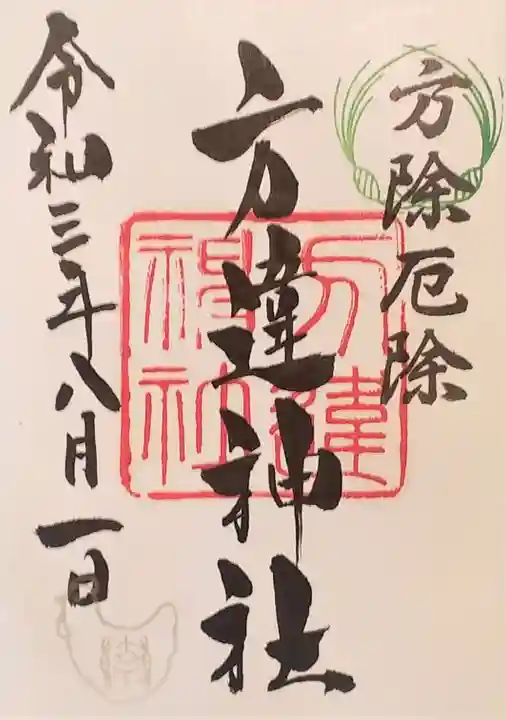 方除厄除
方違神社
方違
神社
令和三年八月一日